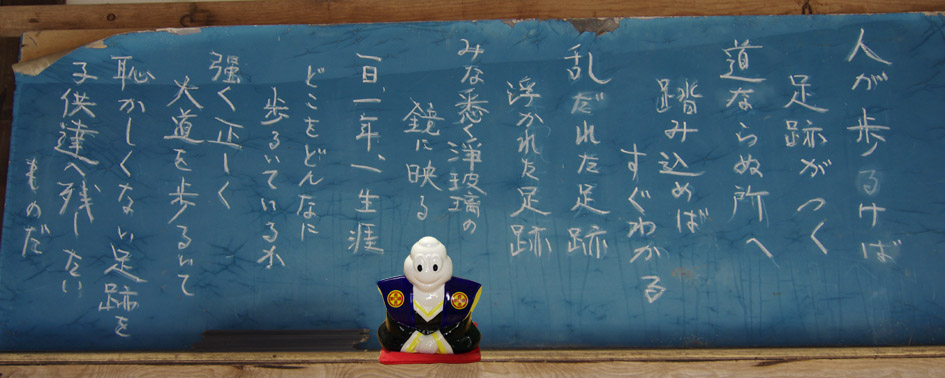 人が歩るけば
足跡がつく
道ならぬ所へ
踏み込めば
すぐわかる
乱だれた足跡
浮かれた足跡
みな悉く浄玻璃の
鏡に映る
一日、一年、一生涯
どこをどんなに
歩るいているか
強く正しく
大道を歩るいて
恥かしくない足跡を
子供達へ残したい
ものだ